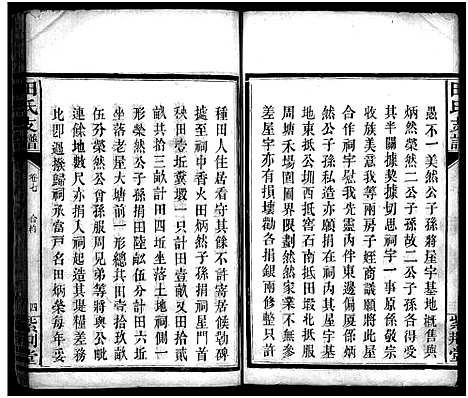 愚不一美然公子孫將屋宇基地概售與
炳然榮然二公子孫故二公子孫各得受
其半關據契據切思祠宇一事我房倡首
收族美意我等兩房子姪商議願將此屋
合作祠宇靈一邊伴東邊偏廈係炳
然公子孫私造亦願捐在祠內其屋基
地東抵公圳西抵窖石南抵田塅北抵服
周圍禾場園圃界限劃然然家業不無參
差屋宇亦有壞勸各捐銀兩修理復議
種田人住居看守其餘不許寄居候勒碑
據至祠中香火田炳然子孫捐祠星門首
秧田壹坵糞塅二只計田壹畝又計田
畝共拾三畝計田四坵坐落土地祠側一
形榮然公子孫捐田陸畝伍分計田六坵
坐落老屋大塘前一形總共田壹拾玖畝
伍分榮然公曾孫服周兄弟等與公
餘坐地數尺亦捐入祠是以標立糧差務
比即過撥歸祠承富戶名田炳榮每年妥
田氏支譜
卷七
合約
四
紫荊堂